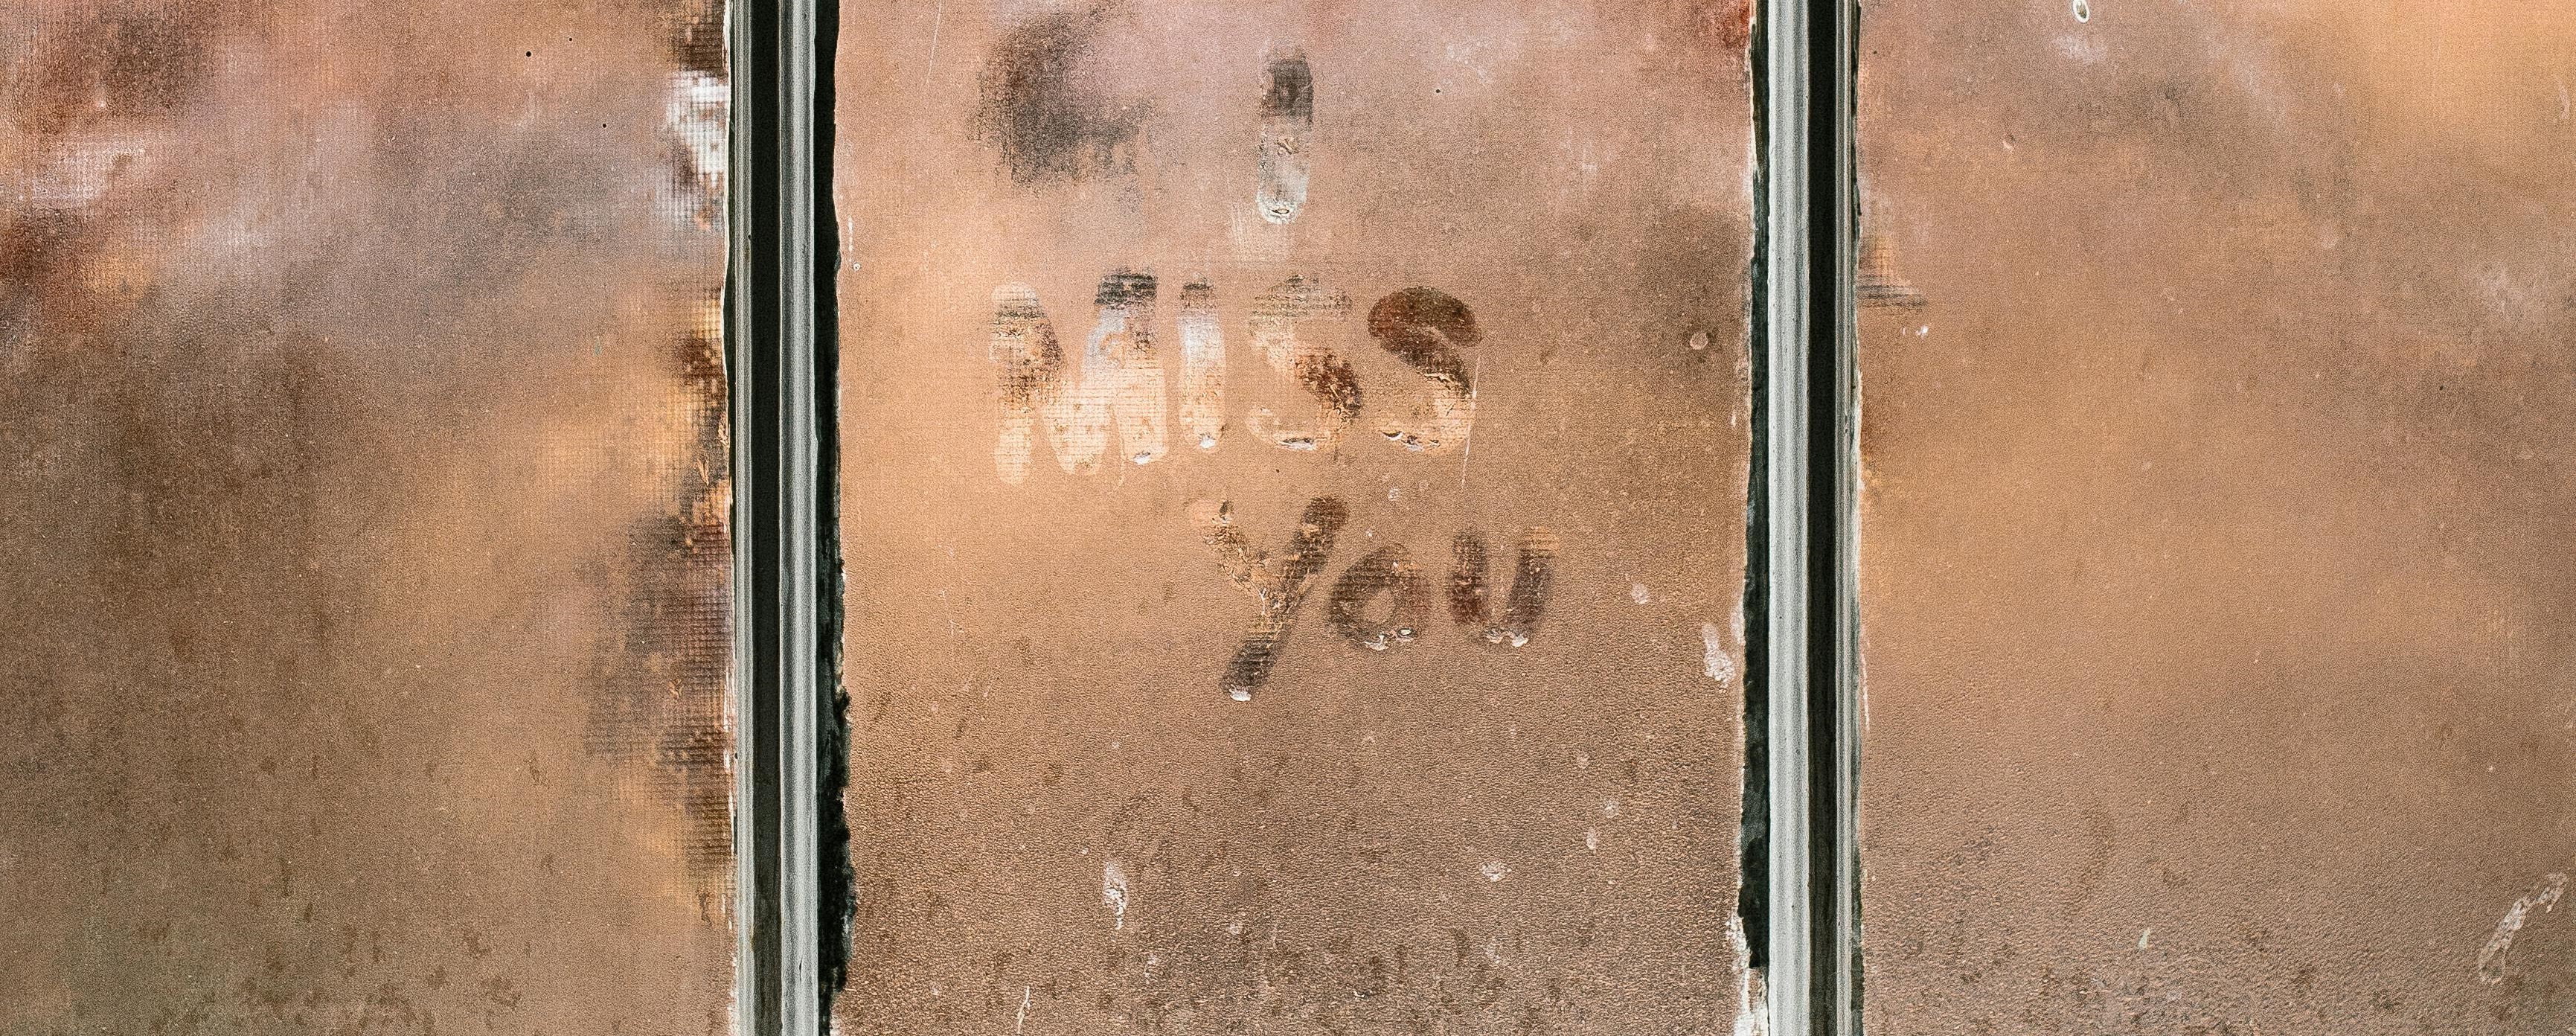 I
MISS
You